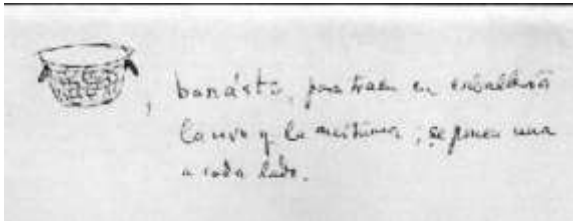 , banásta, para traer en caballería
la uva y la aceituna; se ponen una
a cada lado.